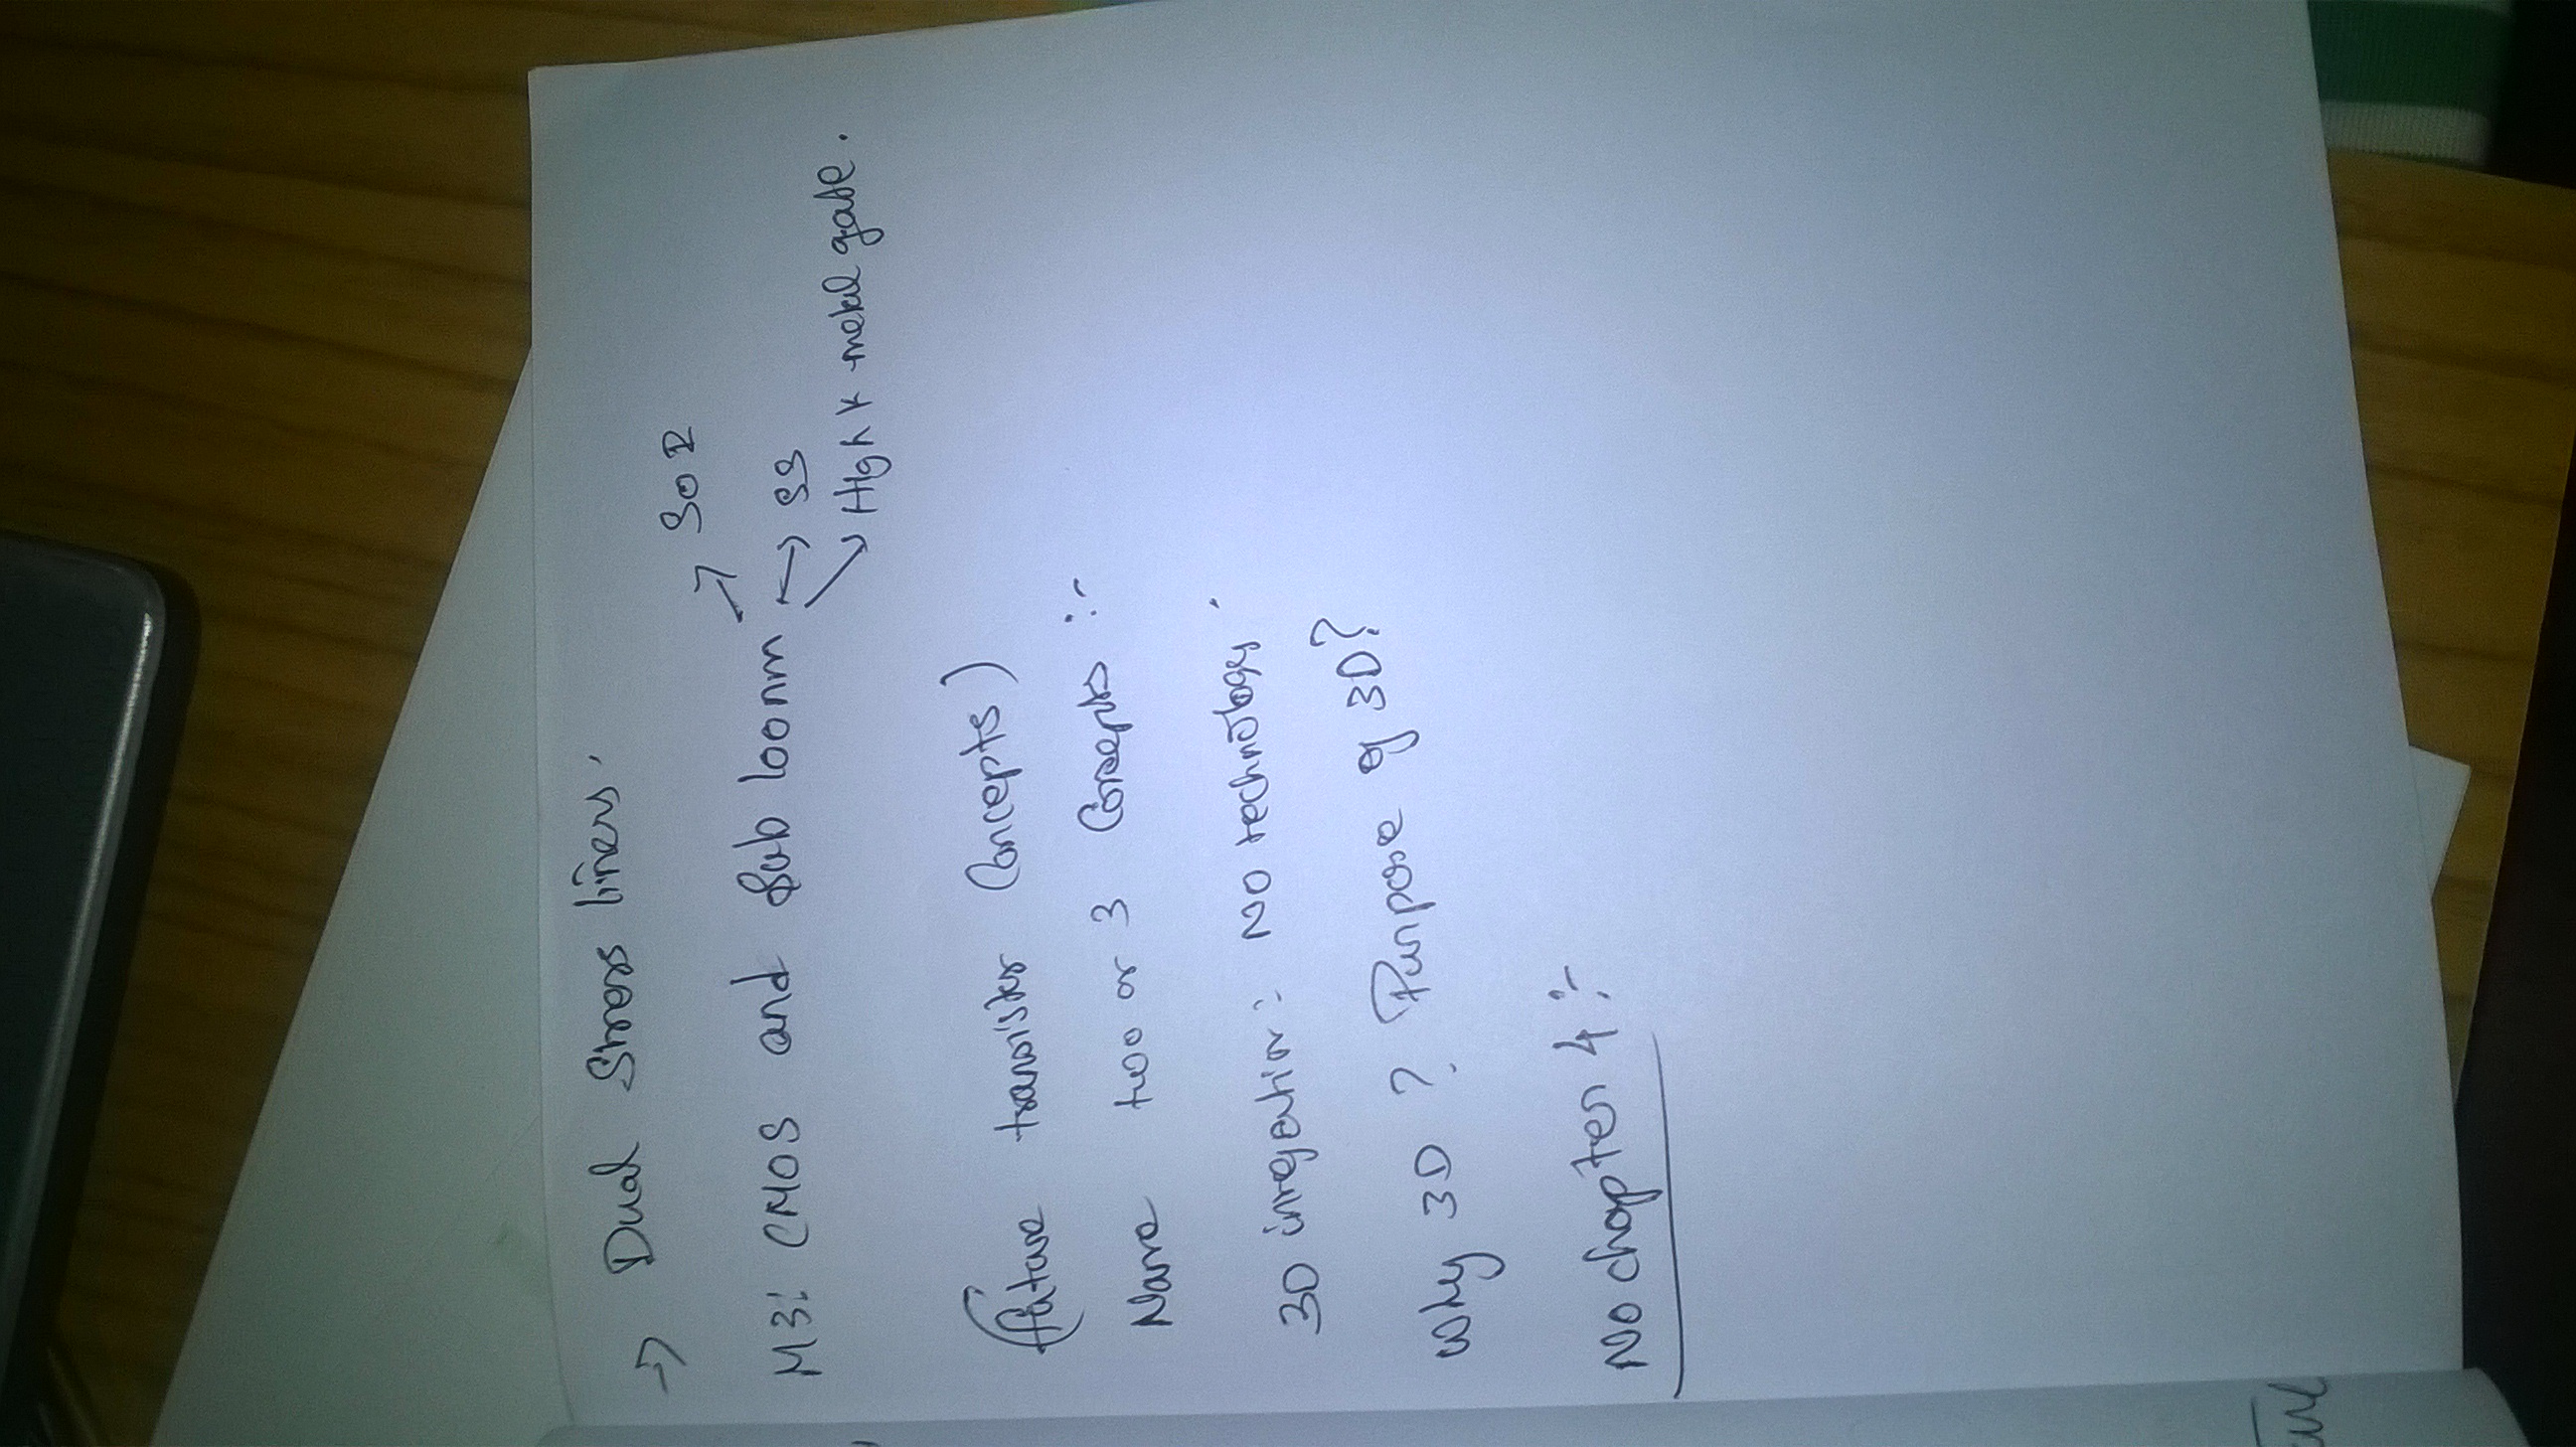 -> Dual Stress liners.
M3: CMOS and Sub 100nm -> SOI
<-> SS
-> High K metal gate.
(future transistor Concepts)
Name two or 3 Concepts :-
3D inregation: NO technology.
Why 3D? Purpose of 3D?
No chapter 4 :-